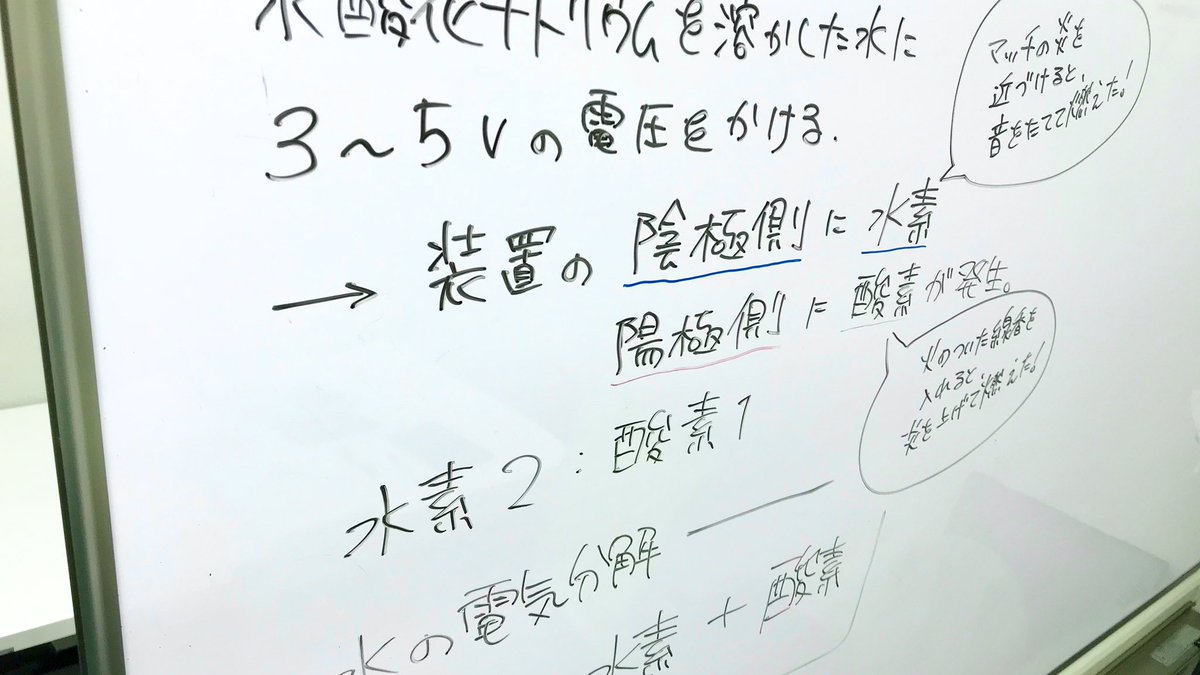 水酸化ナトリウムを溶かした水に
3~5Vの電圧をかける.
→ 装置の陰極側に水素
陽極側に酸素が発生。
マッチの炎を
近づけると、
音をたてて燃えた!
火のついた線香を
入れると、
炎を上げて燃えた!
水素2:酸素1
水の電気分解
水素+酸素